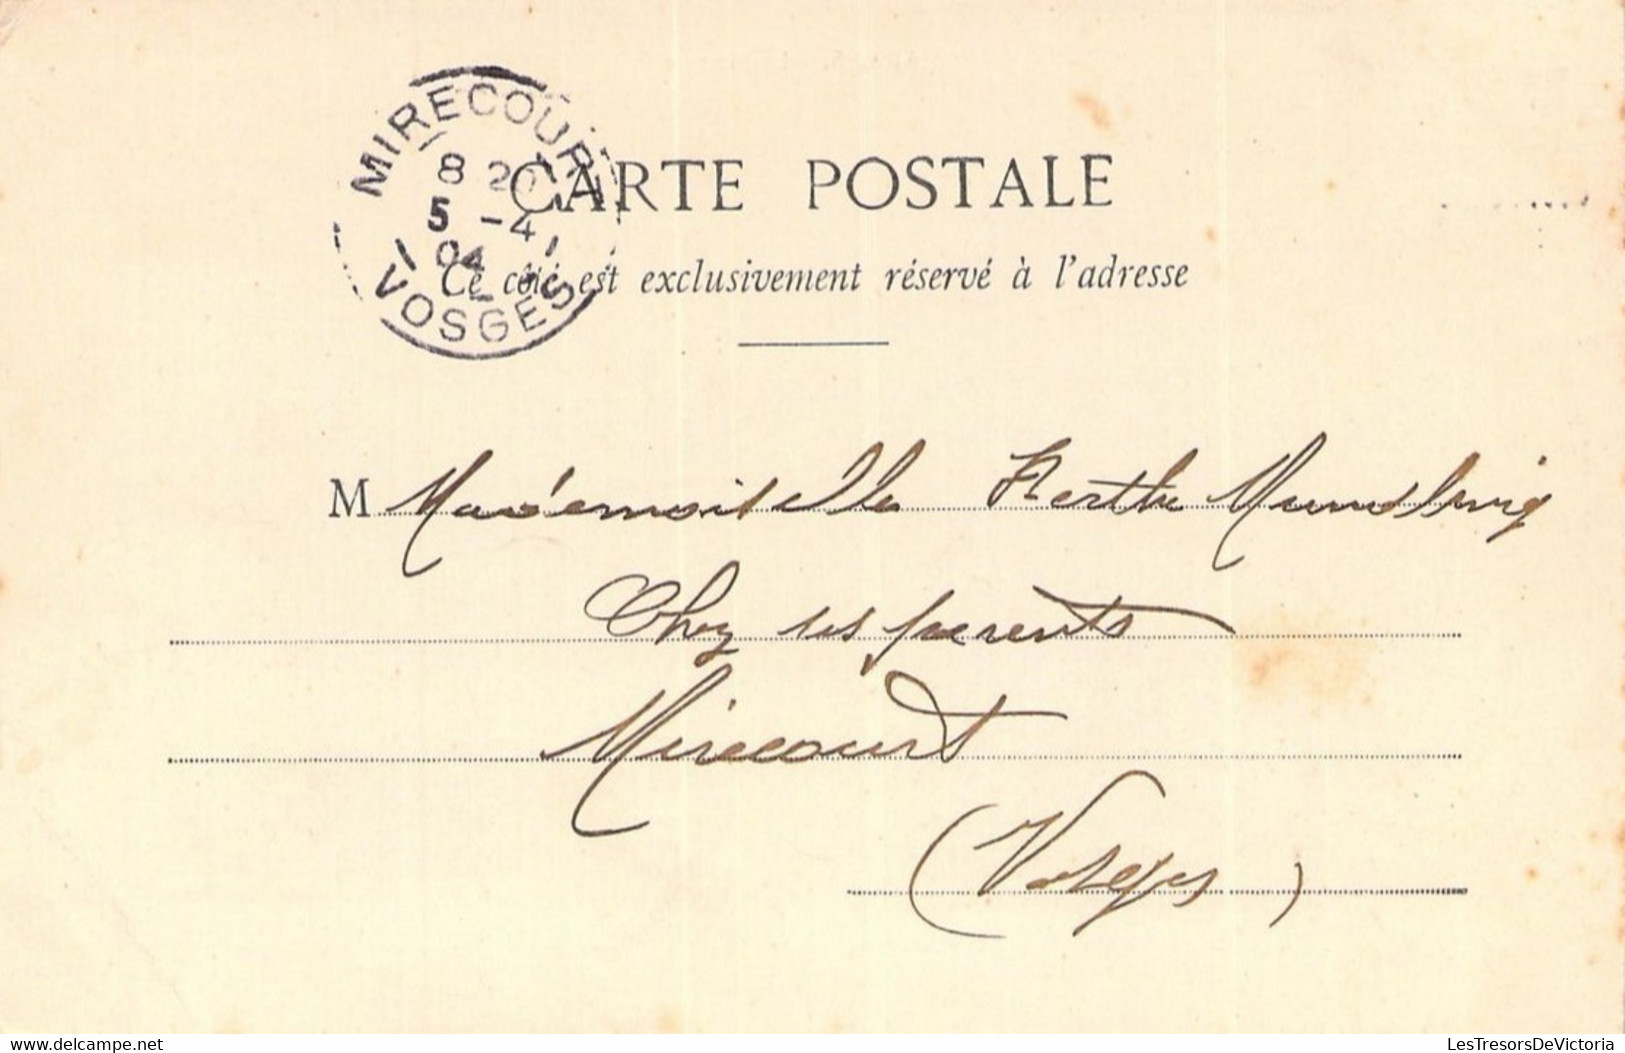 MIRECOURT
8 20
5 -4
04
VOSGES
CARTE POSTALE
Ce côté est exclusivement réservé à l'adresse
M Mademoiselle Berthe
Chez ses parents
Mirecourt
(Vosges)
LesTresorsDeVictoria
LesTresorsDeVictoria.com